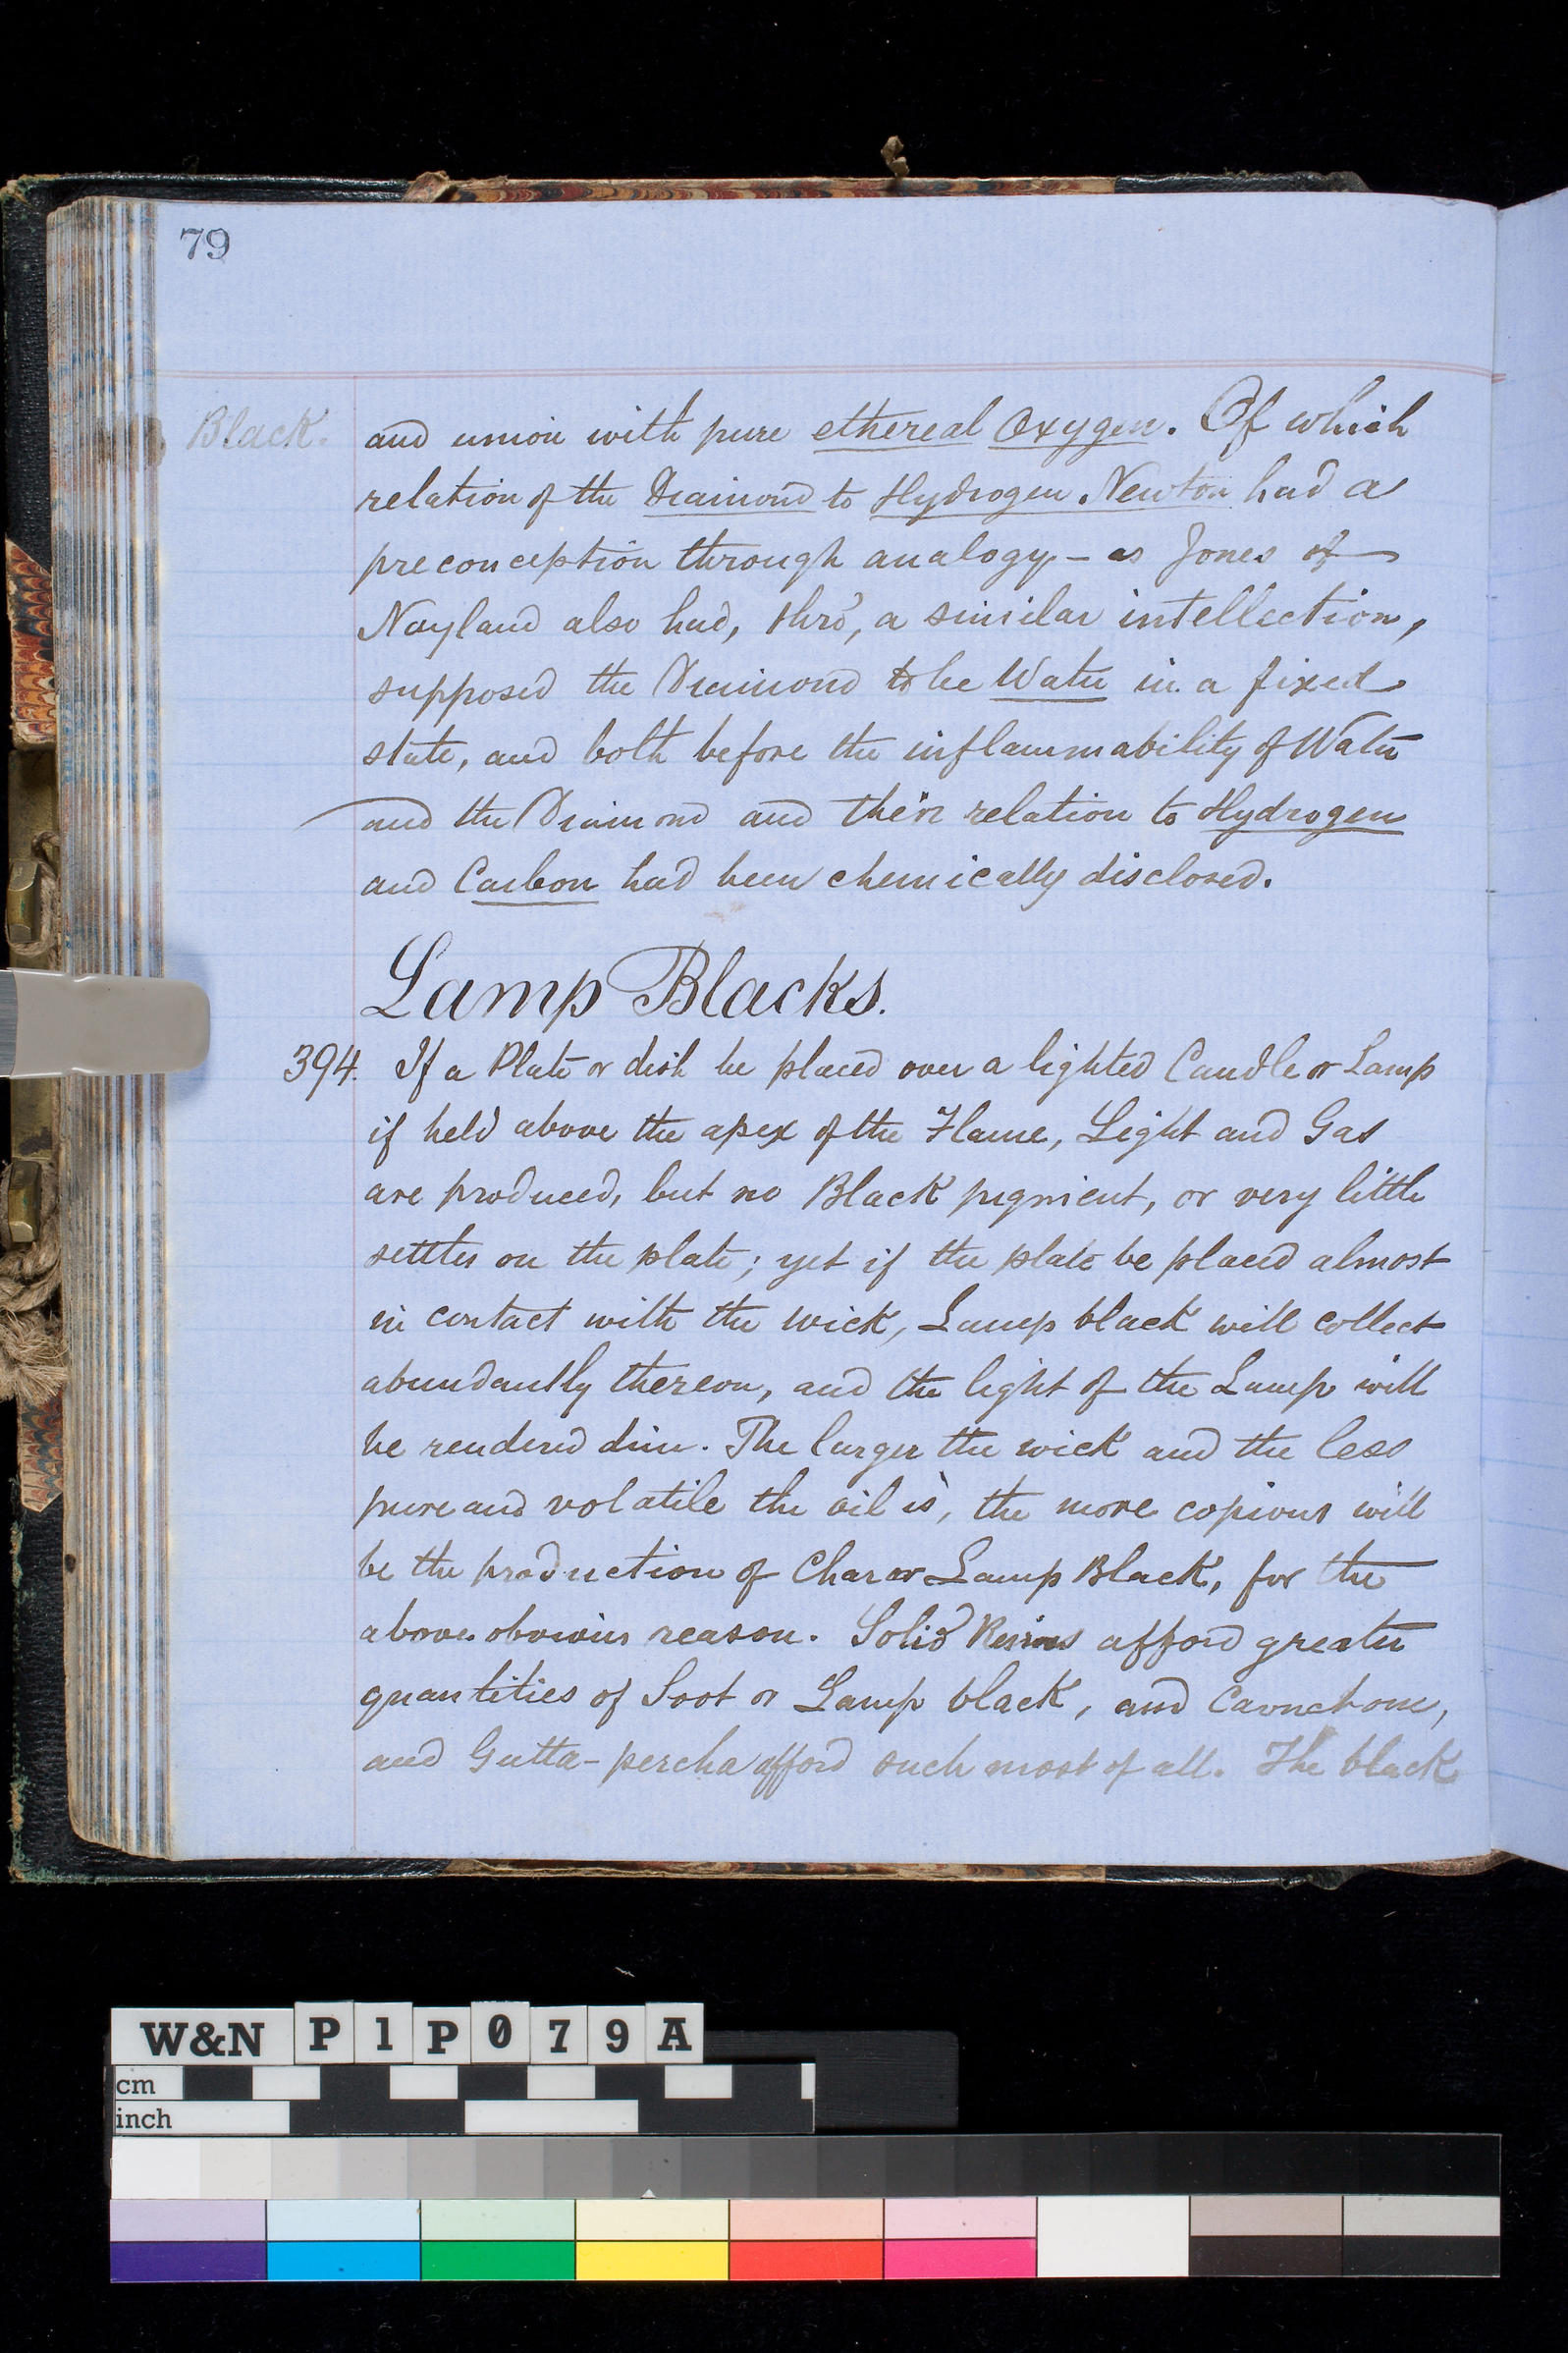 79
Black.
and union with pure ethereal Oxygen. Of which
relation of the Diamond to Hydrogen Newton had a
preconception through analogy - as Jones of
Nayland also had, thro', a similar intellection,
supposed the Diamond to be Water in a fixed
state, and both before the inflammability of Water
and the Diamond and their relation to Hydrogen
and Carbon had been chemically disclosed.
Lamp Blacks.
394. If a Plate or dish be placed over a lighted Candle or Lamp
if held above the apex of the Flame, Light and Gas
are produced, but no Black pigment, or very little
settles on the plate; yet if the plate be placed almost
in contact with the wick, Lamp black will collect
abundantly thereon, and the light of the Lamp will
be rendered dim. The larger the wick and the less
pure and volatile the oil is, the more copious will
be the production of Char or Lamp Black, for the
above obvious reason. Solid Resins afford greater
quantities of Soot or Lamp black, and
and Gutta-percha afford such most of all. The black
W&N P1P079A
cm
inch